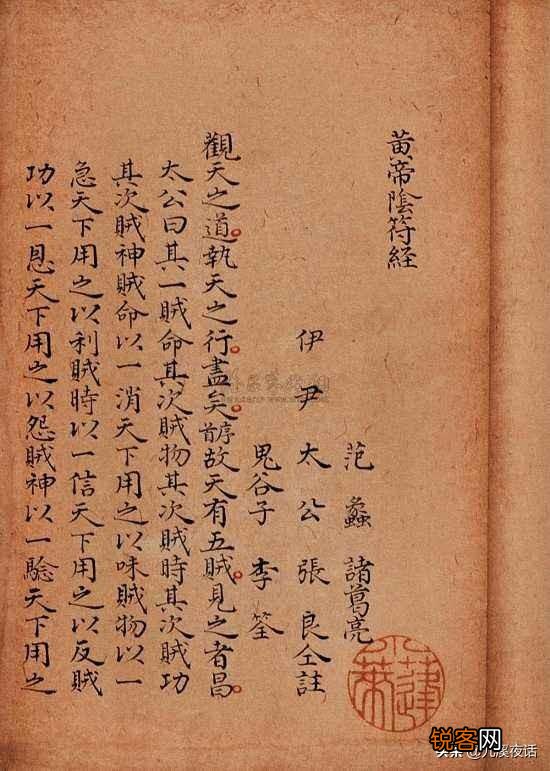 黄帝陰符経
范蠡 諸葛亮
伊尹 太公 張良 仝註
鬼谷子 李筌
觀天之道執天之行盡矣序首故天有五賊見之者昌
太公曰其一賊命其次賊物其次賊時其次賊功
其次賊神賊命以一消天下用之以味賊物以一
急天下用之以利賊時以一信天下用之以反賊
功以一恩天下用之以怨賊神以一騐天下用之
锐客网